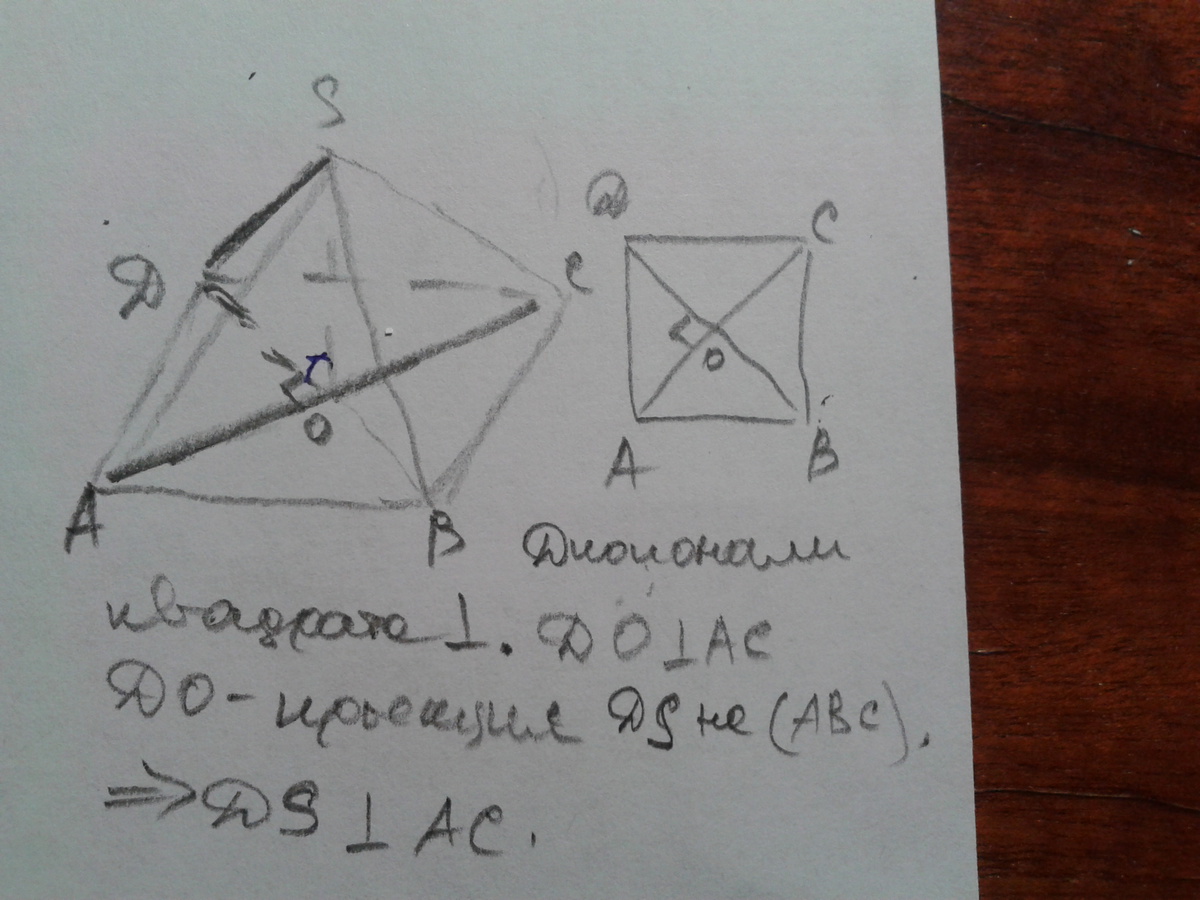 S
Д
C
O
A
B
Д
C
O
A
B
Диагонали
квадрата ⊥. ДО⊥АС
ДО - проекция ДS на (АВС).
⇒ ДS ⊥ АС.